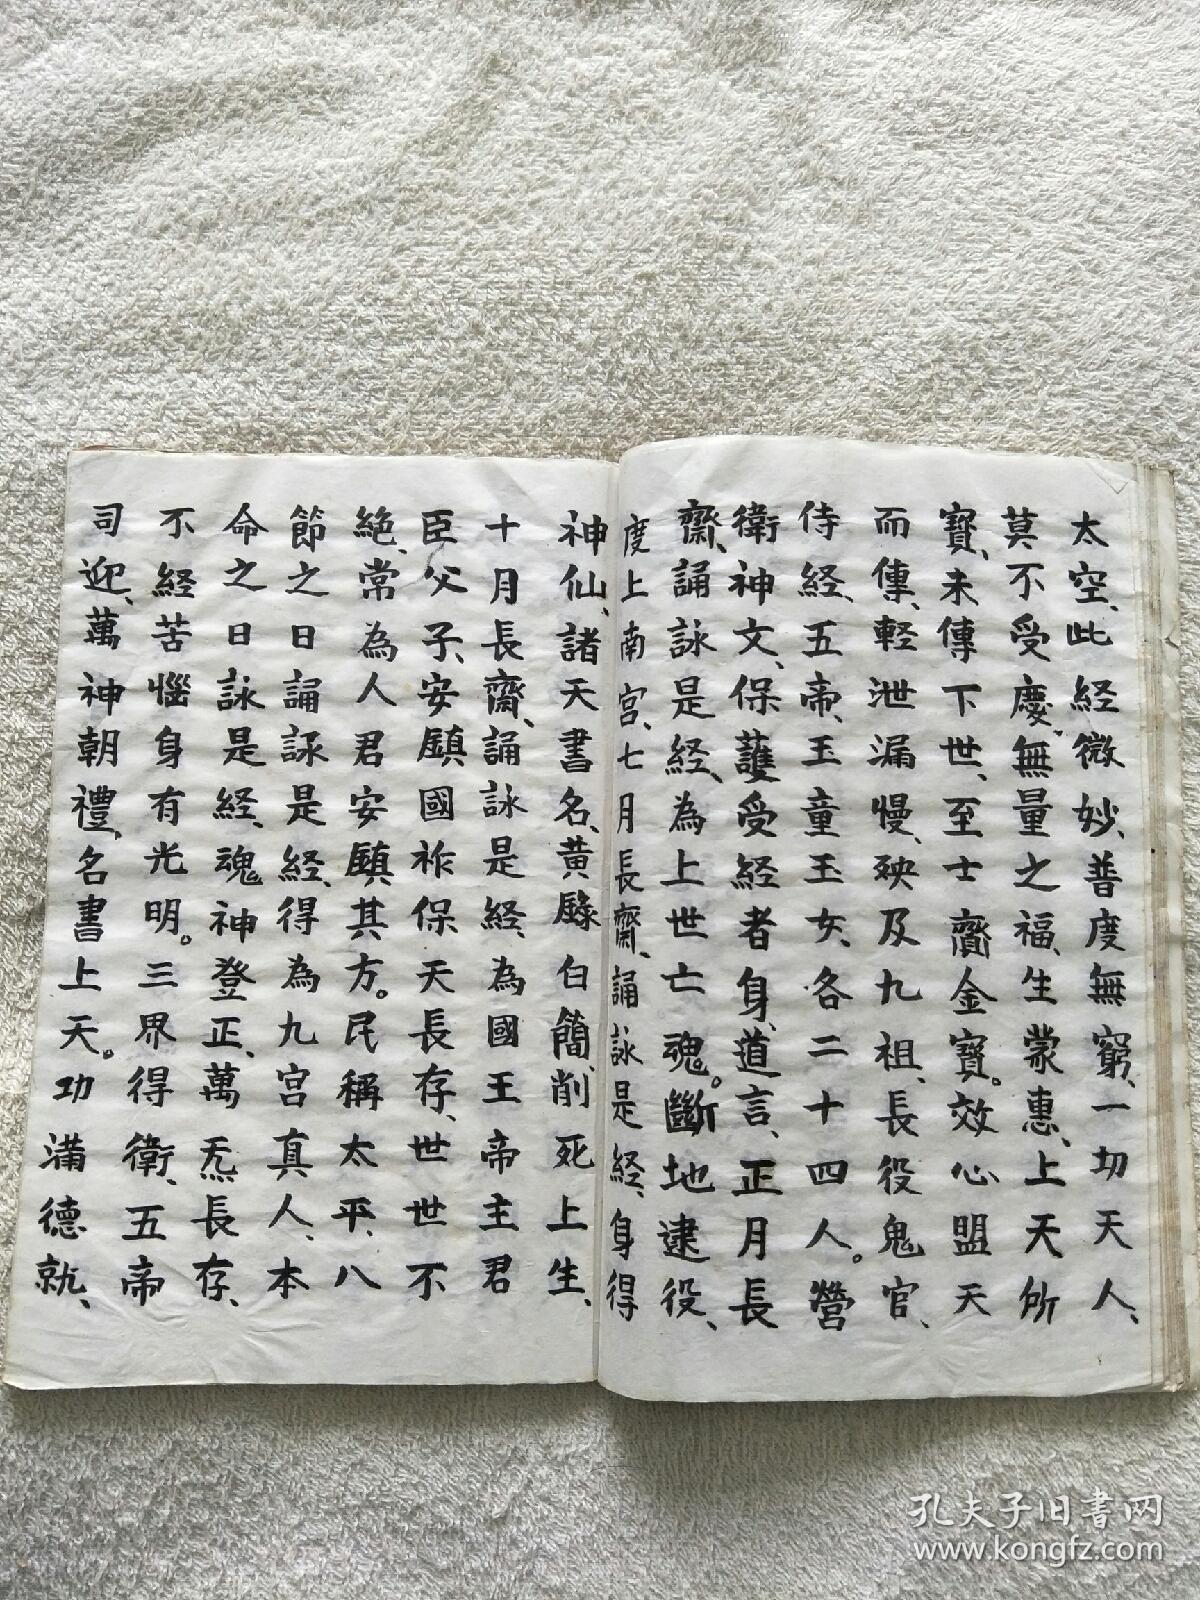 太空、此経微妙、普度無窮、一切天人、
莫不受慶。無量之福、生蒙惠、上天所
寶、未傳下世、至士齎金寶。效心盟天
而傳、軽泄漏慢、殃及九祖、長役鬼官、
侍経、五帝、玉童玉女、各二十四人。營
衛神文、保護受経者身、道言、正月長
齋、誦詠是経、為上世亡魂。斷地逮役、
度上南宮、七月長齋、誦詠是経、身得
神仙、諸天書名、黄籙白簡、削死上生、
十月長齋、誦詠是経、為國王帝主君
臣父子、安鎮國祚保天長存、世世不
絶、常為人君安鎮其方。民稱太平、八
節之日誦詠是経、得為九宮真人、本
命之日詠是経、魂神登正、萬炁長存、
不経苦惱身有光明。三界得衛、五帝
司迎、萬神朝禮、名書上天。功滿德就、
孔夫子旧書网
www.kongfz.com